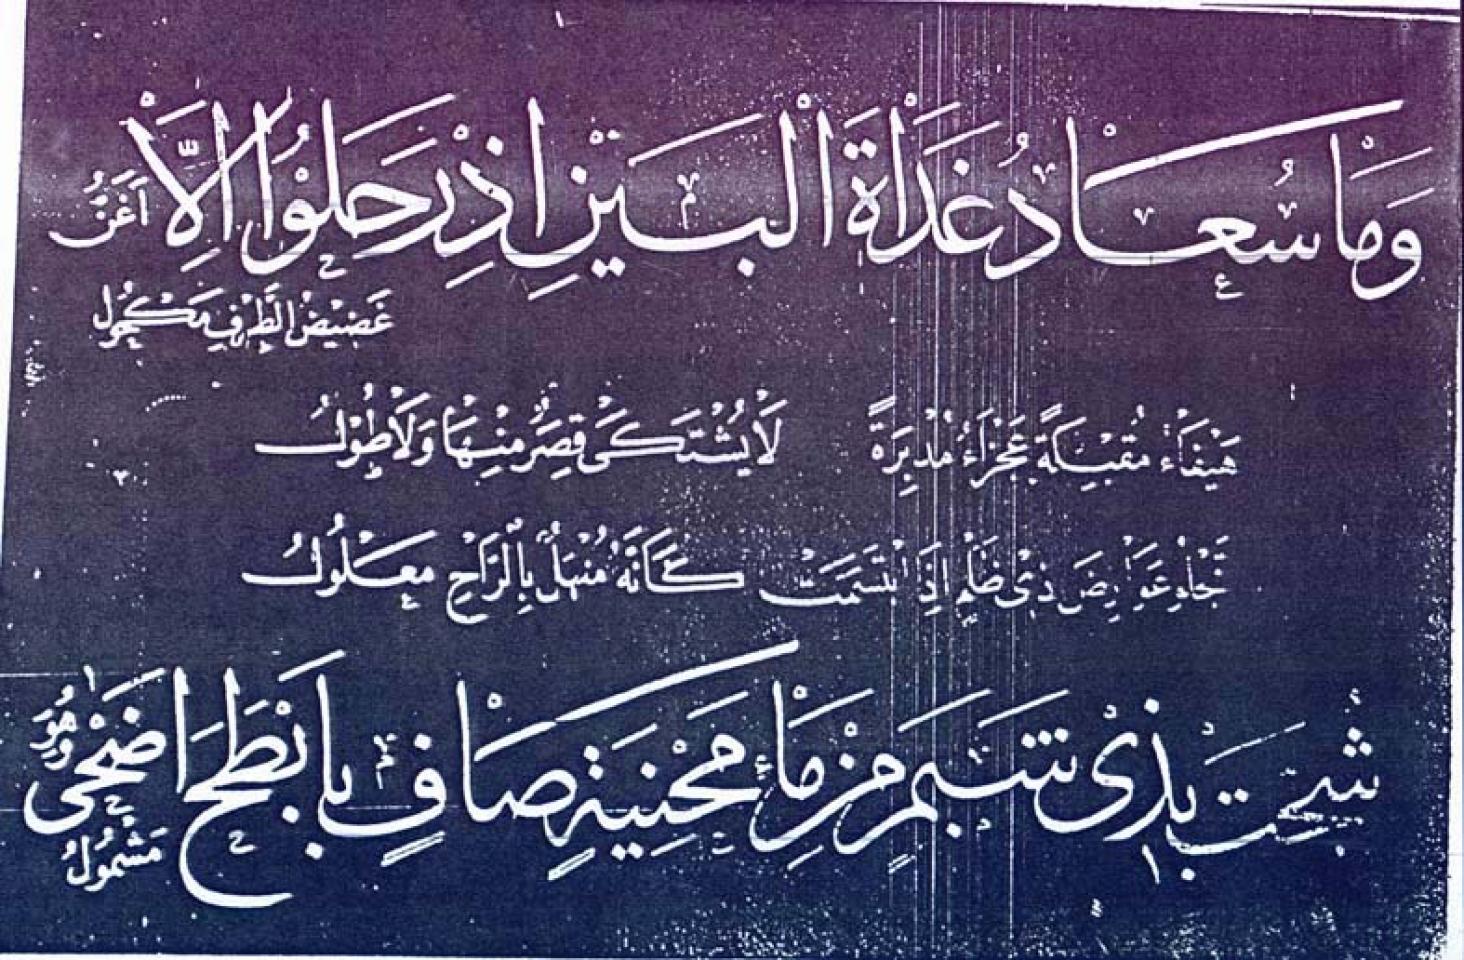 وَمَا سُعَادُ غَدَاةَ الْبَيْنِ إِذْ رَحَلُوا إِلَّا أَغَنُّ
غَضِيضُ الطَّرْفِ مَكْحُولُ
هَيْفَاءُ مُقْبِلَةً عَجْزَاءُ مُدْبِرَةً لَا يُشْتَكَى قِصَرٌ مِنْهَا وَلَا طُولُ
تَجْلُو عَوَارِضَ ذِي ظَلْمٍ إِذَا ابْتَسَمَتْ كَأَنَّهُ مُنْهَلٌ بِالرَّاحِ مَعْلُولُ
شُجَّتْ بِذِي شَبَمٍ مِنْ مَاءِ مَحْنِيَةٍ صَافٍ بِأَبْطَحَ أَضْحَى وَهُوَ
مَشْمُولُ